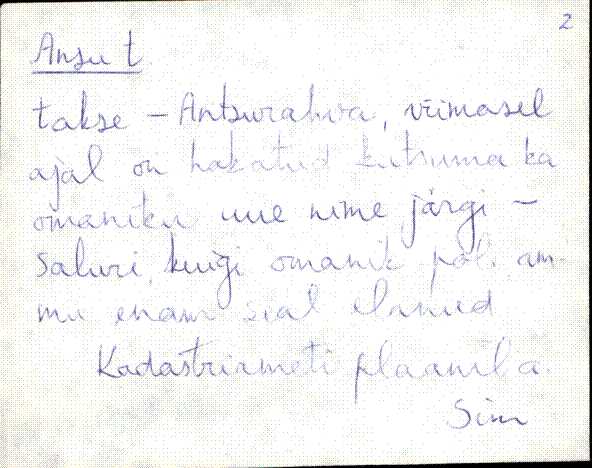 2
Ansu t.
takse – Antsurahva, viimasel
ajal on hakatud kutsuma ka
omaniku uue nime järgi –
Saluri, kuigi omanik pole am-
mu enam seal elanud
Kadastriameti plaanil a.
Sim